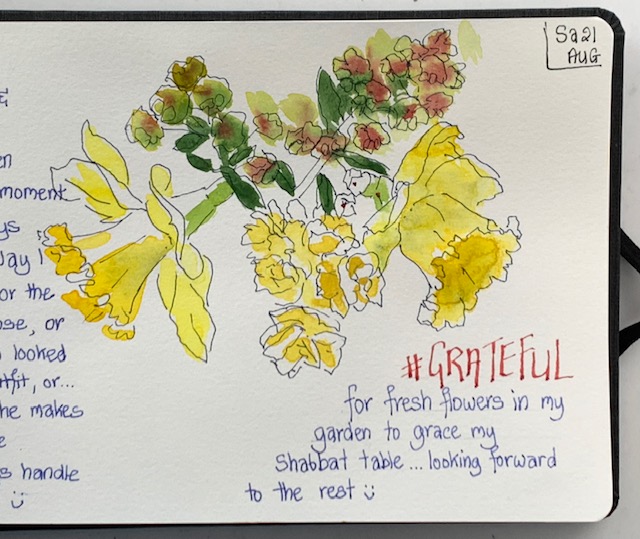 Sa 21
AUG
moment
Way!
or the
or
looked
or...
he makes
s handle
ت
#GRATEFUL
for fresh flowers in my
garden to grace my
Shabbat table ... looking forward
to the rest ت